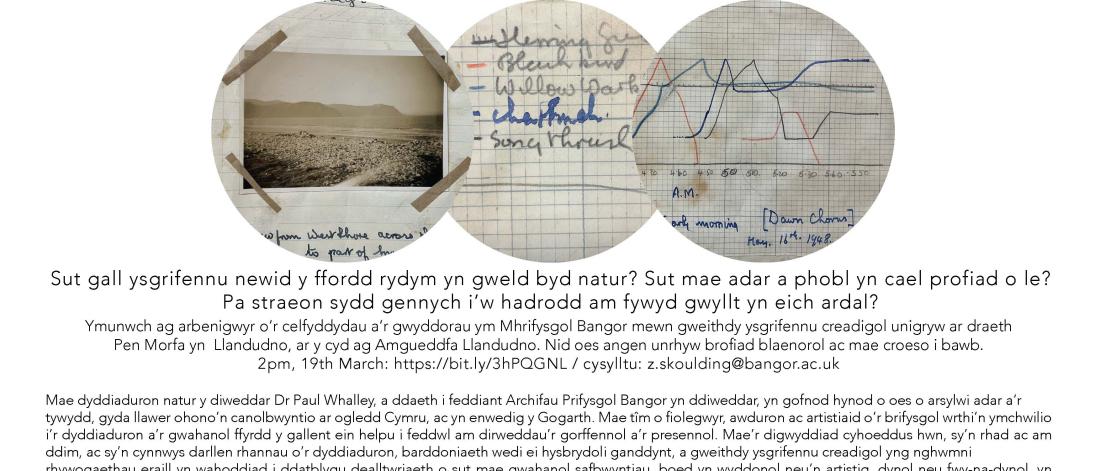 Herring Gu
Blackbird
Willow Warb
Chaffinch.
Song Thrush
4.30 4.40 4.50 5.00 5.10 5.20 5.30 5.40 5.50
A.M.
early morning [Dawn Chorus]
May. 16th. 1948.
from West Shore across
to part of
Sut gall ysgrifennu newid y ffordd rydym yn gweld byd natur? Sut mae adar a phobl yn cael profiad o le?
Pa straeon sydd gennych i'w hadrodd am fywyd gwyllt yn eich ardal?
Ymunwch ag arbenigwyr o'r celfyddydau a'r gwyddorau ym Mhrifysgol Bangor mewn gweithdy ysgrifennu creadigol unigryw ar draeth
Pen Morfa yn Llandudno, ar y cyd ag Amgueddfa Llandudno. Nid oes angen unrhyw brofiad blaenorol ac mae croeso i bawb.
2pm, 19th March: https://bit.ly/3hPQGNL / cysylltu: z.skoulding@bangor.ac.uk
Mae dyddiaduron natur y diweddar Dr Paul Whalley, a ddaeth i feddiant Archifau Prifysgol Bangor yn ddiweddar, yn gofnod hynod o oes o arsylwi adar a'r
tywydd, gyda llawer ohono'n canolbwyntio ar ogledd Cymru, ac yn enwedig y Gogarth. Mae tîm o fiolegwyr, awduron ac artistiaid o'r brifysgol wrthi'n ymchwilio
i'r dyddiaduron a'r gwahanol ffyrdd y gallent ein helpu i feddwl am dirweddau'r gorffennol a'r presennol. Mae'r digwyddiad cyhoeddus hwn, sy'n rhad ac am
ddim, ac sy'n cynnwys darllen rhannau o'r dyddiaduron, barddoniaeth wedi ei hysbrydoli ganddynt, a gweithdy ysgrifennu creadigol yng nghwmni
rhywogaethau eraill yn wahoddiad i ddatblygu dealltwriaeth o sut mae gwahanol safbwyntiau, boed yn wyddonol neu'n artistig, dynol neu fwy-na-dynol, yn